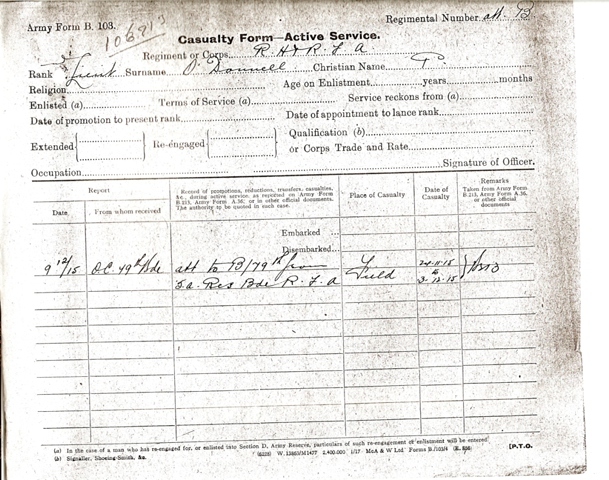 Army Form B. 103.
Regimental Number att.
106813
Casualty Form—Active Service.
Regiment or Corps R. H & R. F. A
Rank Lieut Surname O'Donnell Christian Name
Religion Age on Enlistment years months
Enlisted (a) Terms of Service (a) Service reckons from (a)
Date of promotion to present rank Date of appointment to lance rank
Extended Re-engaged Qualification (b)
or Corps Trade and Rate
Occupation Signature of Officer.
Report
Date From whom received
Record of promotions, reductions, transfers, casualties,
&c., during active service, as reported on Army Form
B.213, Army Form A.36, or in other official documents.
The authority to be quoted in such case.
Place of Casualty
Date of
Casualty
Remarks
Taken from Army Form
B.213, Army Form A.36,
or other official
documents
Embarked ...
Disembarked...
9/12/15 O.C. 49th Bde att to B/79th from Field 24-11-15
5a. Res Bde R. F. A to 3-12-15 B213
(a) In the case of a man who has re-engaged for, or enlisted into Section D, Army Reserve, particulars of such re-engagement or enlistment will be entered
(b) Signaller, Shoeing-Smith, &c. 2,400,000 1/17 McA & W Ltd Forms B./103/4 [P.T.O.